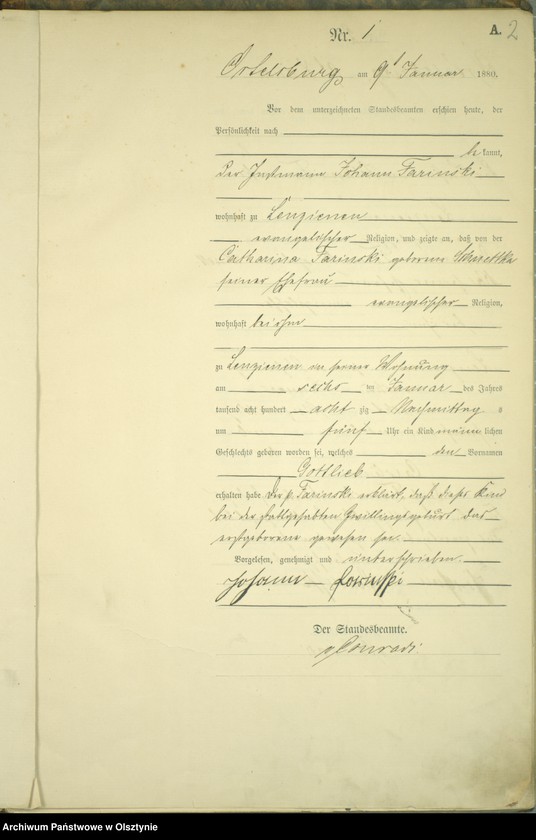 Nr. 1
A. 2
Ortelsburg am 9t Januar 1880.
Vor dem unterzeichneten Standesbeamten erschien heute, der
Persönlichkeit nach
be kannt,
der Instmann Johann Farinski
wohnhaft zu Lenzienen
evangelischer Religion, und zeigte an, daß von der
Catharina Farinski geborenen
seiner Ehefrau
evangelischer Religion,
wohnhaft bei ihm
zu Lenzienen in seiner Wohnung
am sechs ten Januar des Jahres
tausend acht hundert acht zig Nachmittag s
um fünf Uhr ein Kind männ lichen
Geschlechts geboren worden sei, welches den Vornamen
Gottlieb
erhalten habe. Der p. Farinski erklärt, daß dieses Kind
bei der stattgehabten Zwillingsgeburt das
erstgeborene gewesen sei.
Vorgelesen, genehmigt und unterschrieben.
Johann Farinski
Der Standesbeamte.
Conradi
Archiwum Państwowe w Olsztynie